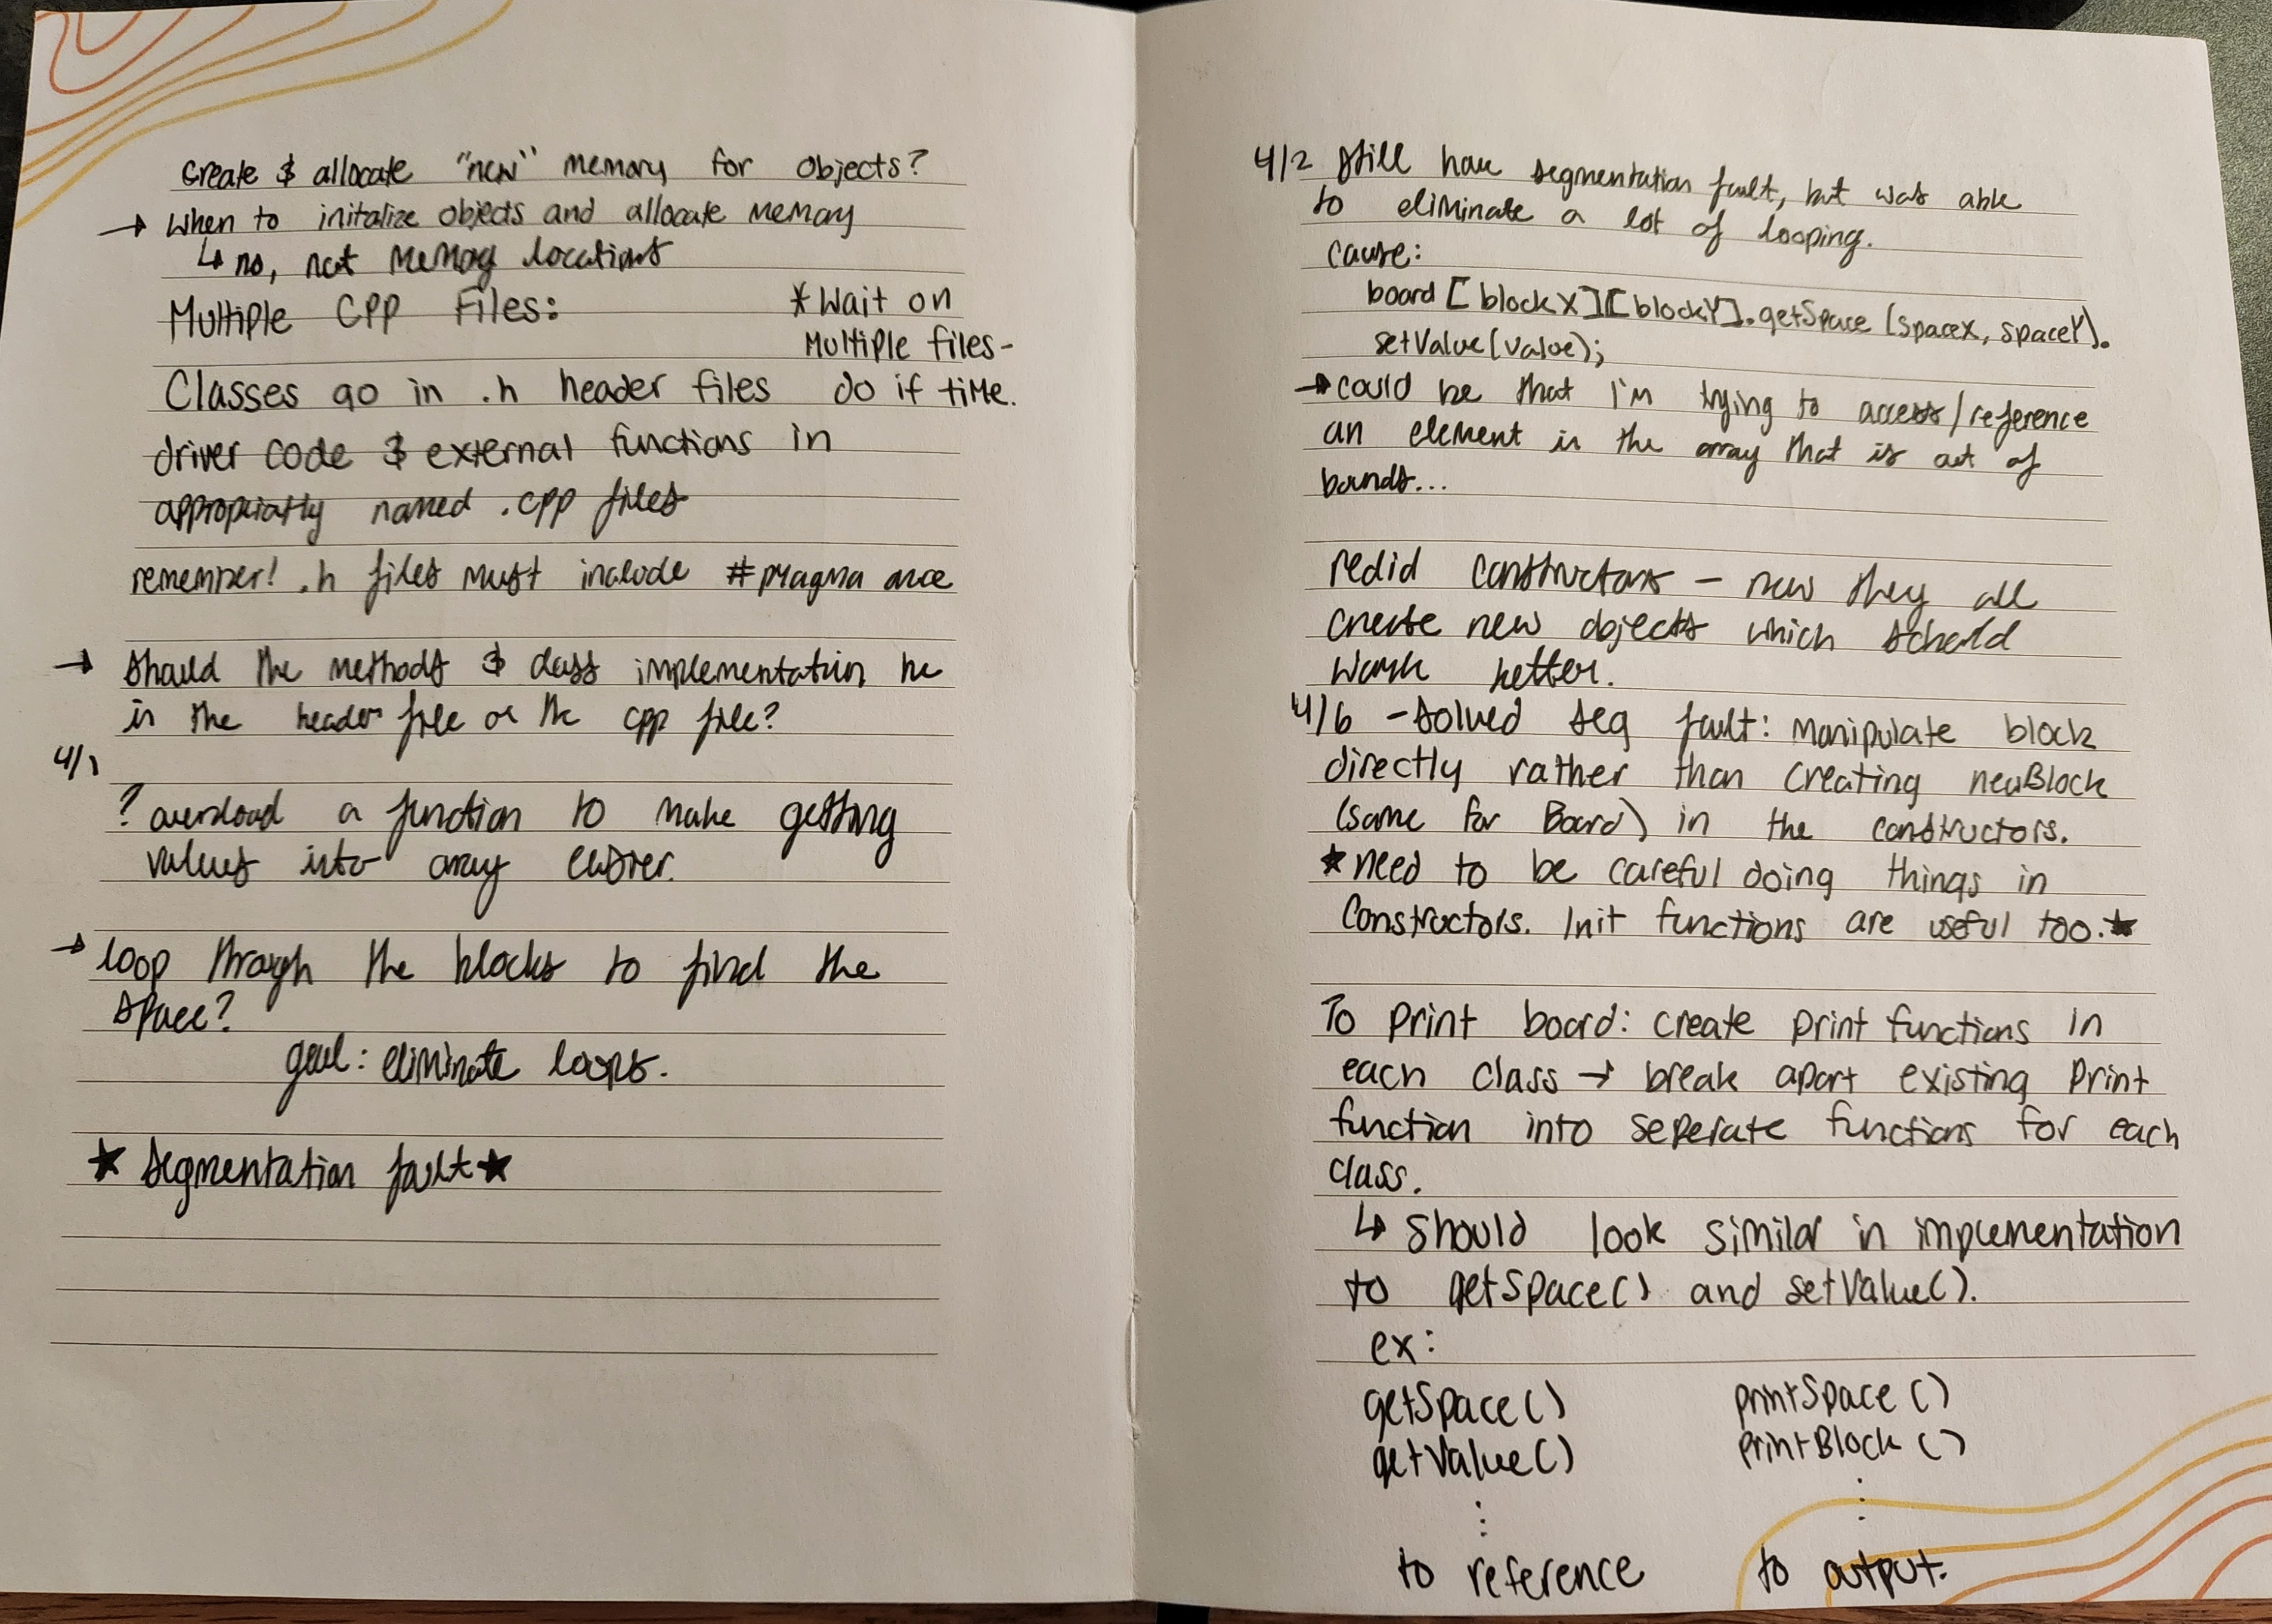 Create & allocate "new" memory for objects?
→ When to initalize objects and allocate memory
↳ no, not memory locations
Multiple CPP Files:
*Wait on
Multiple files-
do if time.
Classes go in .h header files
driver code & external functions in
appropriatly named .cpp files
remember! .h files must include #pragma once
→ should the methods & class implementation be
in the header file or the cpp file?
4/1
? overload a function to make getting
values into array easier.
→ loop through the blocks to find the
space?
goal: eliminate loops.
★ segmentation fault ★
4/2 still have segmentation fault, but was able
to eliminate a lot of looping.
cause:
board[blockX][blockY].getSpace(spaceX, spaceY).
setValue(value);
→ could be that I'm trying to access/reference
an element in the array that is out of
bounds...
redid constructors - now they all
create new objects which should
work better.
4/6 - solved seg fault: manipulate block
directly rather than creating newBlock
(same for Board) in the constructors.
★ need to be careful doing things in
constructors. Init functions are useful too. ★
To print board: create print functions in
each class → break apart existing print
function into seperate functions for each
class.
↳ should look similar in implementation
to getSpace() and setValue().
ex:
getSpace() printSpace()
getValue() printBlock()
⋮ ⋮
to reference to output.